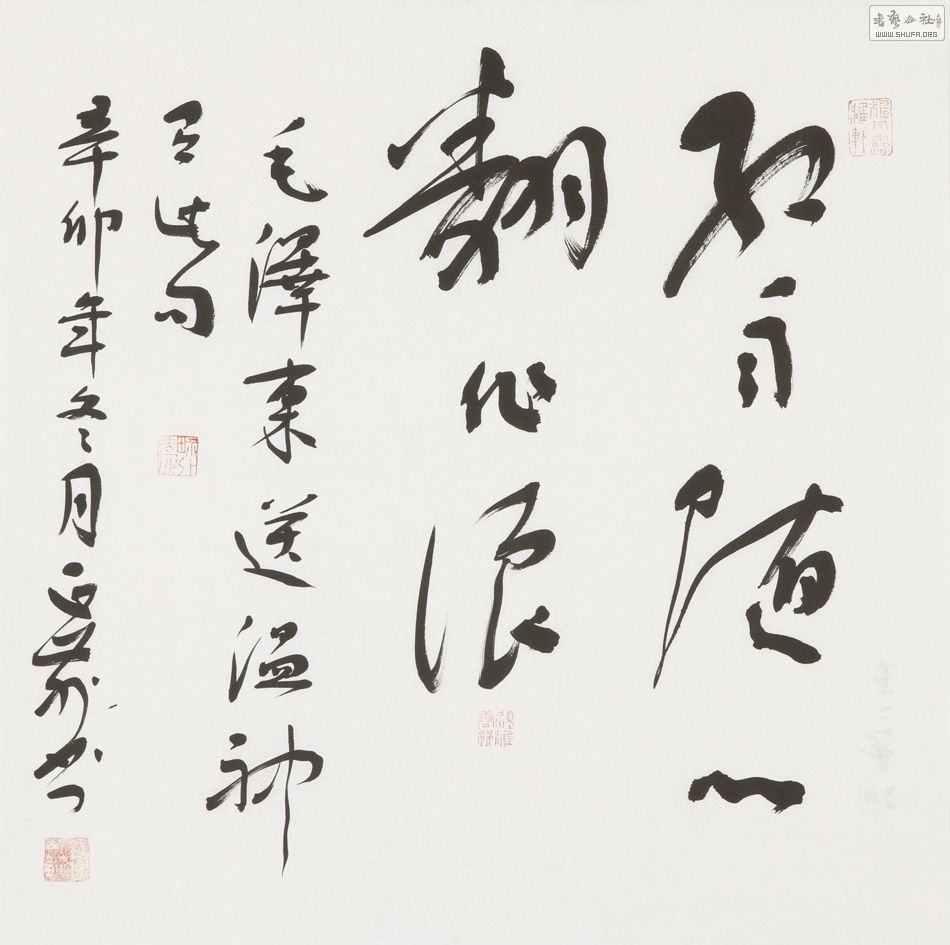 書藝公社
WWW.SHUFA.ORG
红雨随心
翻作浪
毛澤東送温神
句
辛卯年冬月书